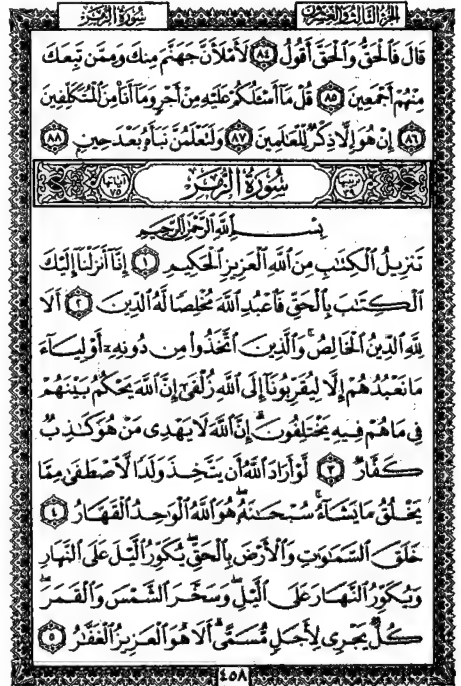 الجزء الثالث والعشرون سُورَةُ الزُّمَرِ
قَالَ فَٱلْحَقُّ وَٱلْحَقَّ أَقُولُ ٨٤ لَأَمْلَأَنَّ جَهَنَّمَ مِنكَ وَمِمَّن تَبِعَكَ
مِنْهُمْ أَجْمَعِينَ ٨٥ قُلْ مَآ أَسْـَٔلُكُمْ عَلَيْهِ مِنْ أَجْرٍ وَمَآ أَنَا۠ مِنَ ٱلْمُتَكَلِّفِينَ
٨٦ إِنْ هُوَ إِلَّا ذِكْرٌ لِّلْعَٰلَمِينَ ٨٧ وَلَتَعْلَمُنَّ نَبَأَهُۥ بَعْدَ حِينٍۭ ٨٨
ترتيبها ٣٩ سُورَةُ الزُّمَرِ آياتها ٧٥
بِسْمِ ٱللَّهِ ٱلرَّحْمَٰنِ ٱلرَّحِيمِ
تَنزِيلُ ٱلْكِتَٰبِ مِنَ ٱللَّهِ ٱلْعَزِيزِ ٱلْحَكِيمِ ١ إِنَّآ أَنزَلْنَآ إِلَيْكَ
ٱلْكِتَٰبَ بِٱلْحَقِّ فَٱعْبُدِ ٱللَّهَ مُخْلِصًا لَّهُ ٱلدِّينَ ٢ أَلَا
لِلَّهِ ٱلدِّينُ ٱلْخَالِصُ ۚ وَٱلَّذِينَ ٱتَّخَذُوا۟ مِن دُونِهِۦٓ أَوْلِيَآءَ
مَا نَعْبُدُهُمْ إِلَّا لِيُقَرِّبُونَآ إِلَى ٱللَّهِ زُلْفَىٰٓ إِنَّ ٱللَّهَ يَحْكُمُ بَيْنَهُمْ
فِى مَا هُمْ فِيهِ يَخْتَلِفُونَ ۗ إِنَّ ٱللَّهَ لَا يَهْدِى مَنْ هُوَ كَٰذِبٌ
كَفَّارٌ ٣ لَّوْ أَرَادَ ٱللَّهُ أَن يَتَّخِذَ وَلَدًا لَّٱصْطَفَىٰ مِمَّا
يَخْلُقُ مَا يَشَآءُ ۚ سُبْحَٰنَهُۥ ۖ هُوَ ٱللَّهُ ٱلْوَٰحِدُ ٱلْقَهَّارُ ٤
خَلَقَ ٱلسَّمَٰوَٰتِ وَٱلْأَرْضَ بِٱلْحَقِّ ۖ يُكَوِّرُ ٱلَّيْلَ عَلَى ٱلنَّهَارِ
وَيُكَوِّرُ ٱلنَّهَارَ عَلَى ٱلَّيْلِ ۖ وَسَخَّرَ ٱلشَّمْسَ وَٱلْقَمَرَ ۖ
كُلٌّ يَجْرِى لِأَجَلٍ مُّسَمًّى ۗ أَلَا هُوَ ٱلْعَزِيزُ ٱلْغَفَّٰرُ ٥
٤٥٨